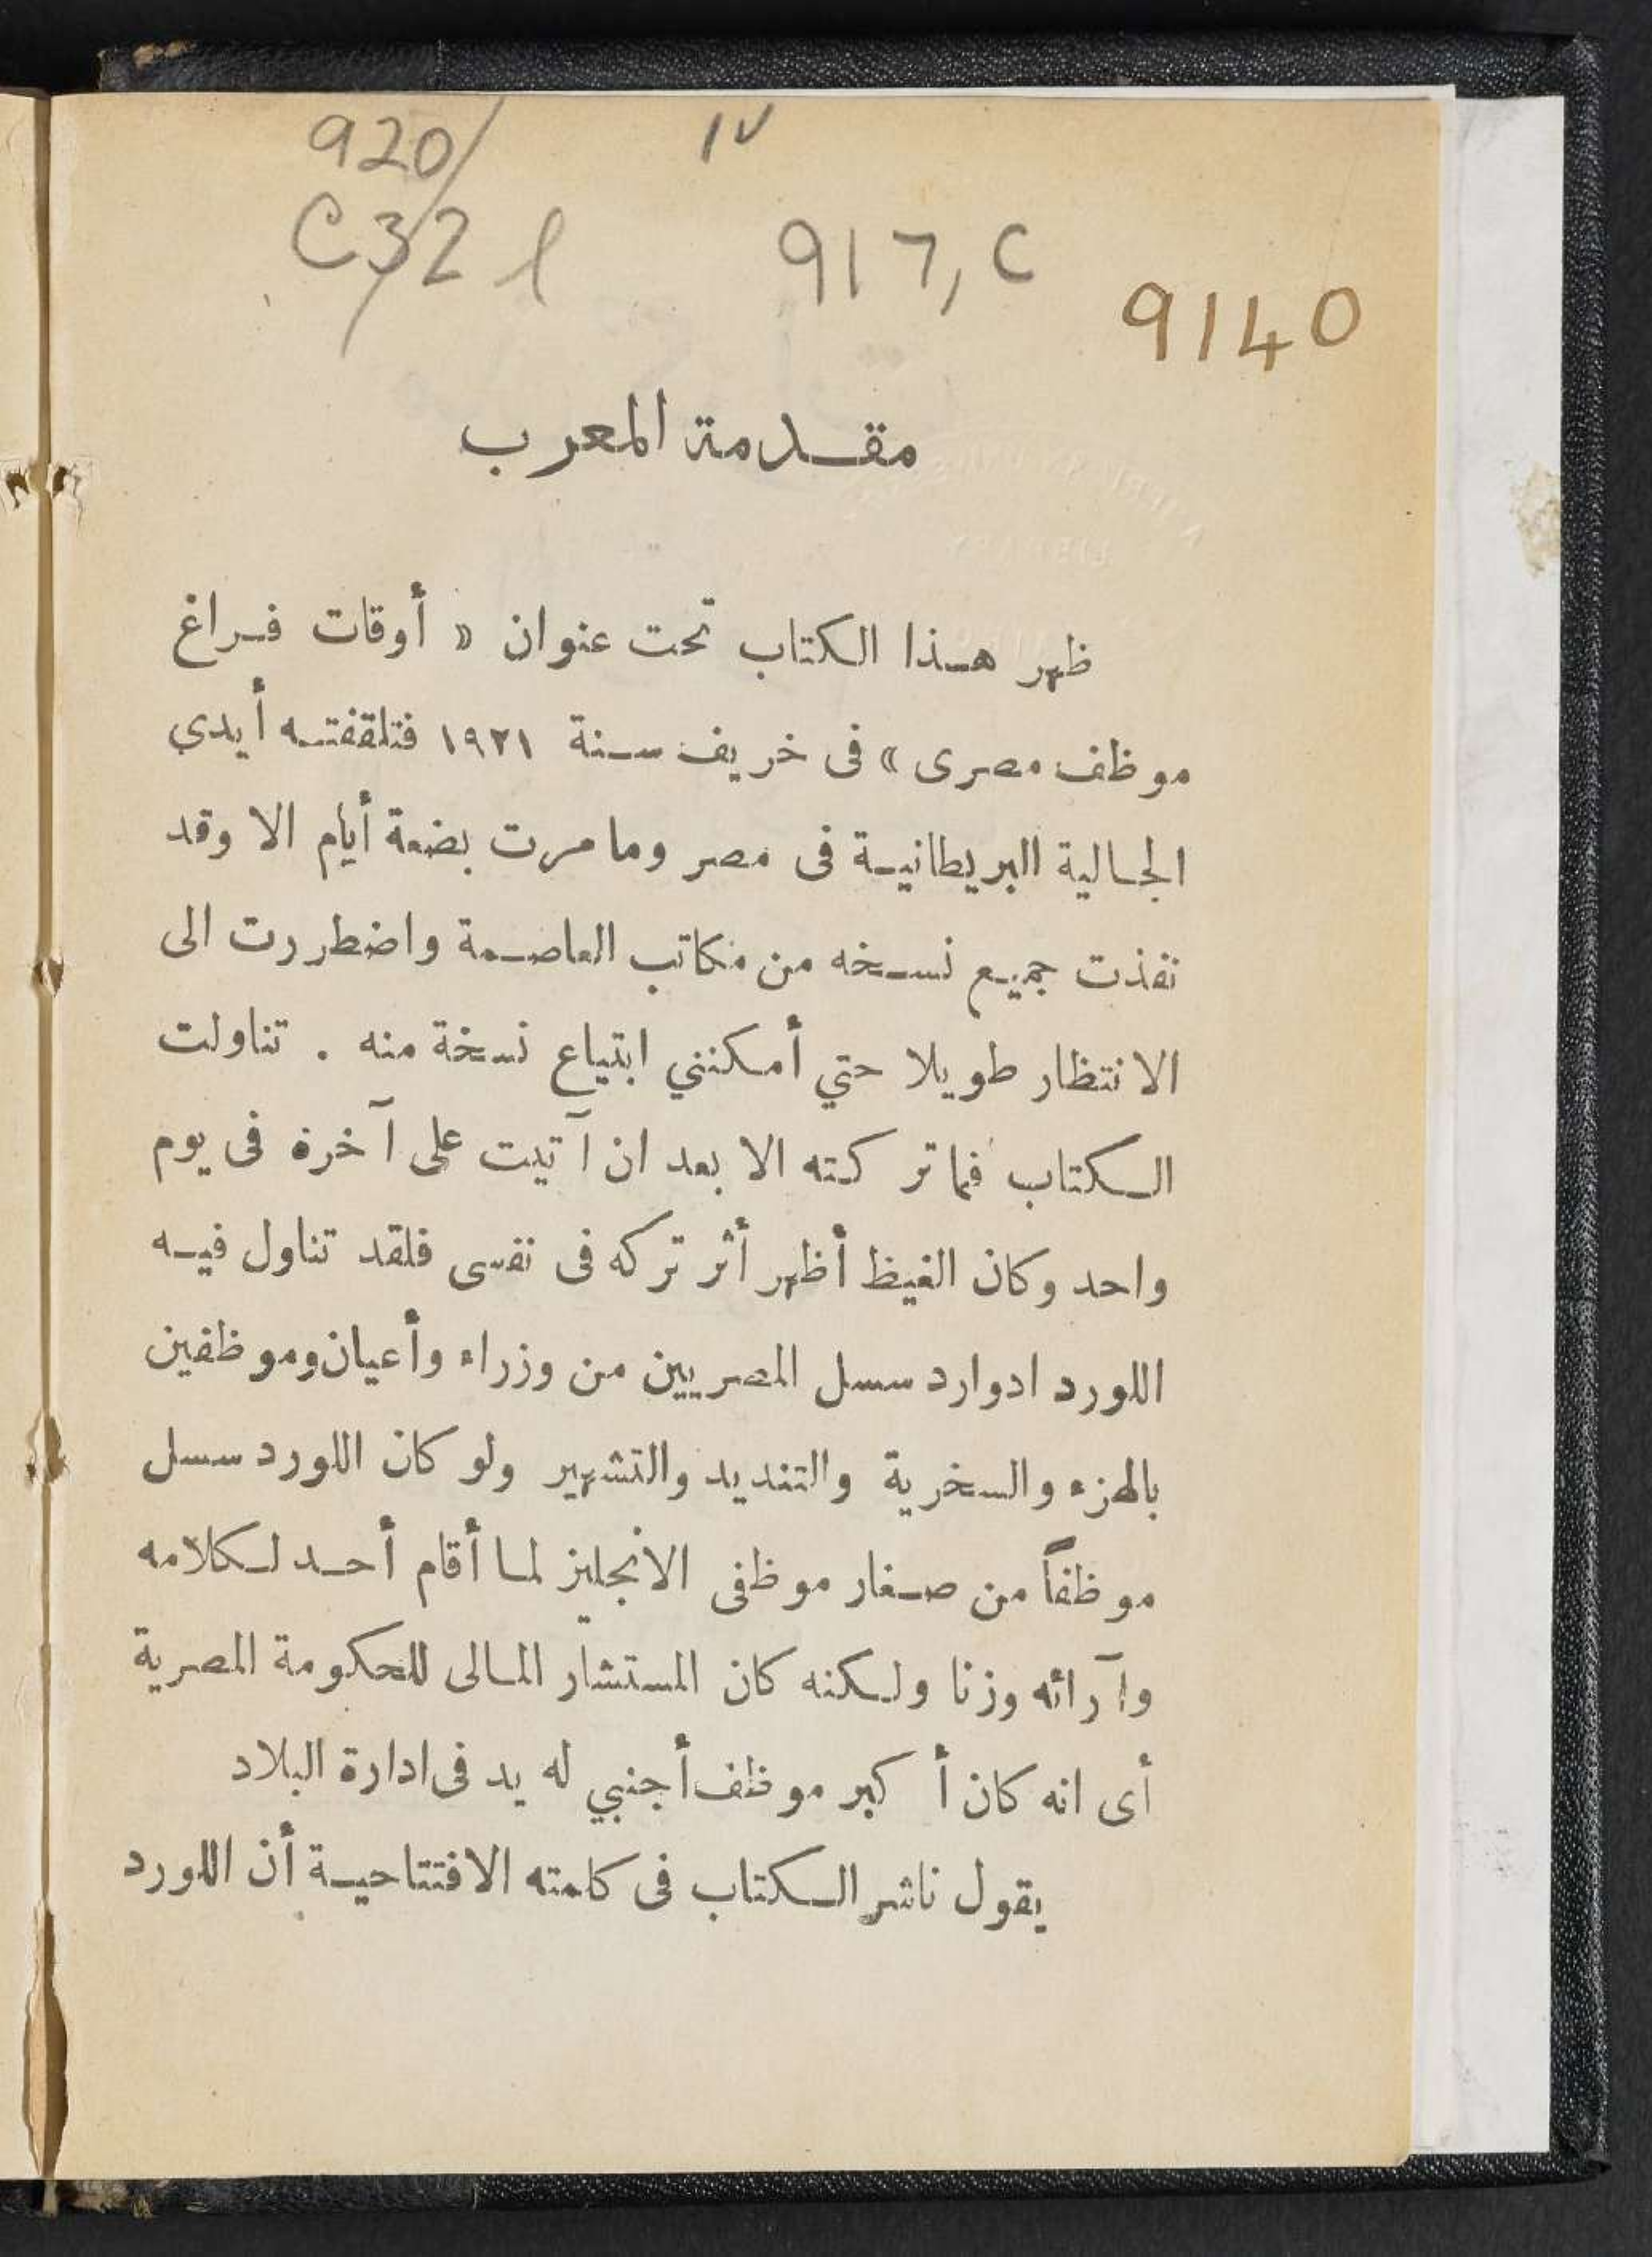 920
١٧
C32 l
917, C
9140
مقدمة المعرب
ظهر هذا الكتاب تحت عنوان « أوقات فراغ
موظف مصرى » فى خريف سنة ١٩٢١ فتلقفته أيدي
الجالية البريطانية فى مصر وما مرت بضعة أيام الا وقد
نفذت جميع نسخه من مكاتب العاصمة واضطررت الى
الانتظار طويلا حتي أمكنني ابتياع نسخة منه . تناولت
الكتاب فما تركته الا بعد ان آتيت على آخرة فى يوم
واحد وكان الغيظ أظهر أثر تركه فى نفسى فلقد تناول فيه
اللورد ادوارد سسل المصريين من وزراء وأعيان وموظفين
بالهزء والسخرية والتنديد والتشهير ولو كان اللورد سسل
موظفاً من صغار موظفى الانجليز لما أقام أحد لكلامه
وآرائه وزنا ولكنه كان المستشار المالى للحكومة المصرية
أى انه كان أكبر موظف أجنبي له يد فى ادارة البلاد
يقول ناشر الكتاب فى كلمته الافتتاحية أن اللورد